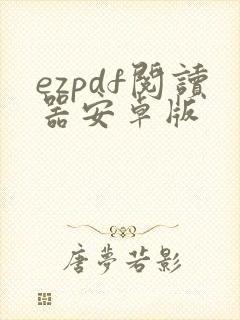 ezpdf閱讀
器安卓版
唐夢若影